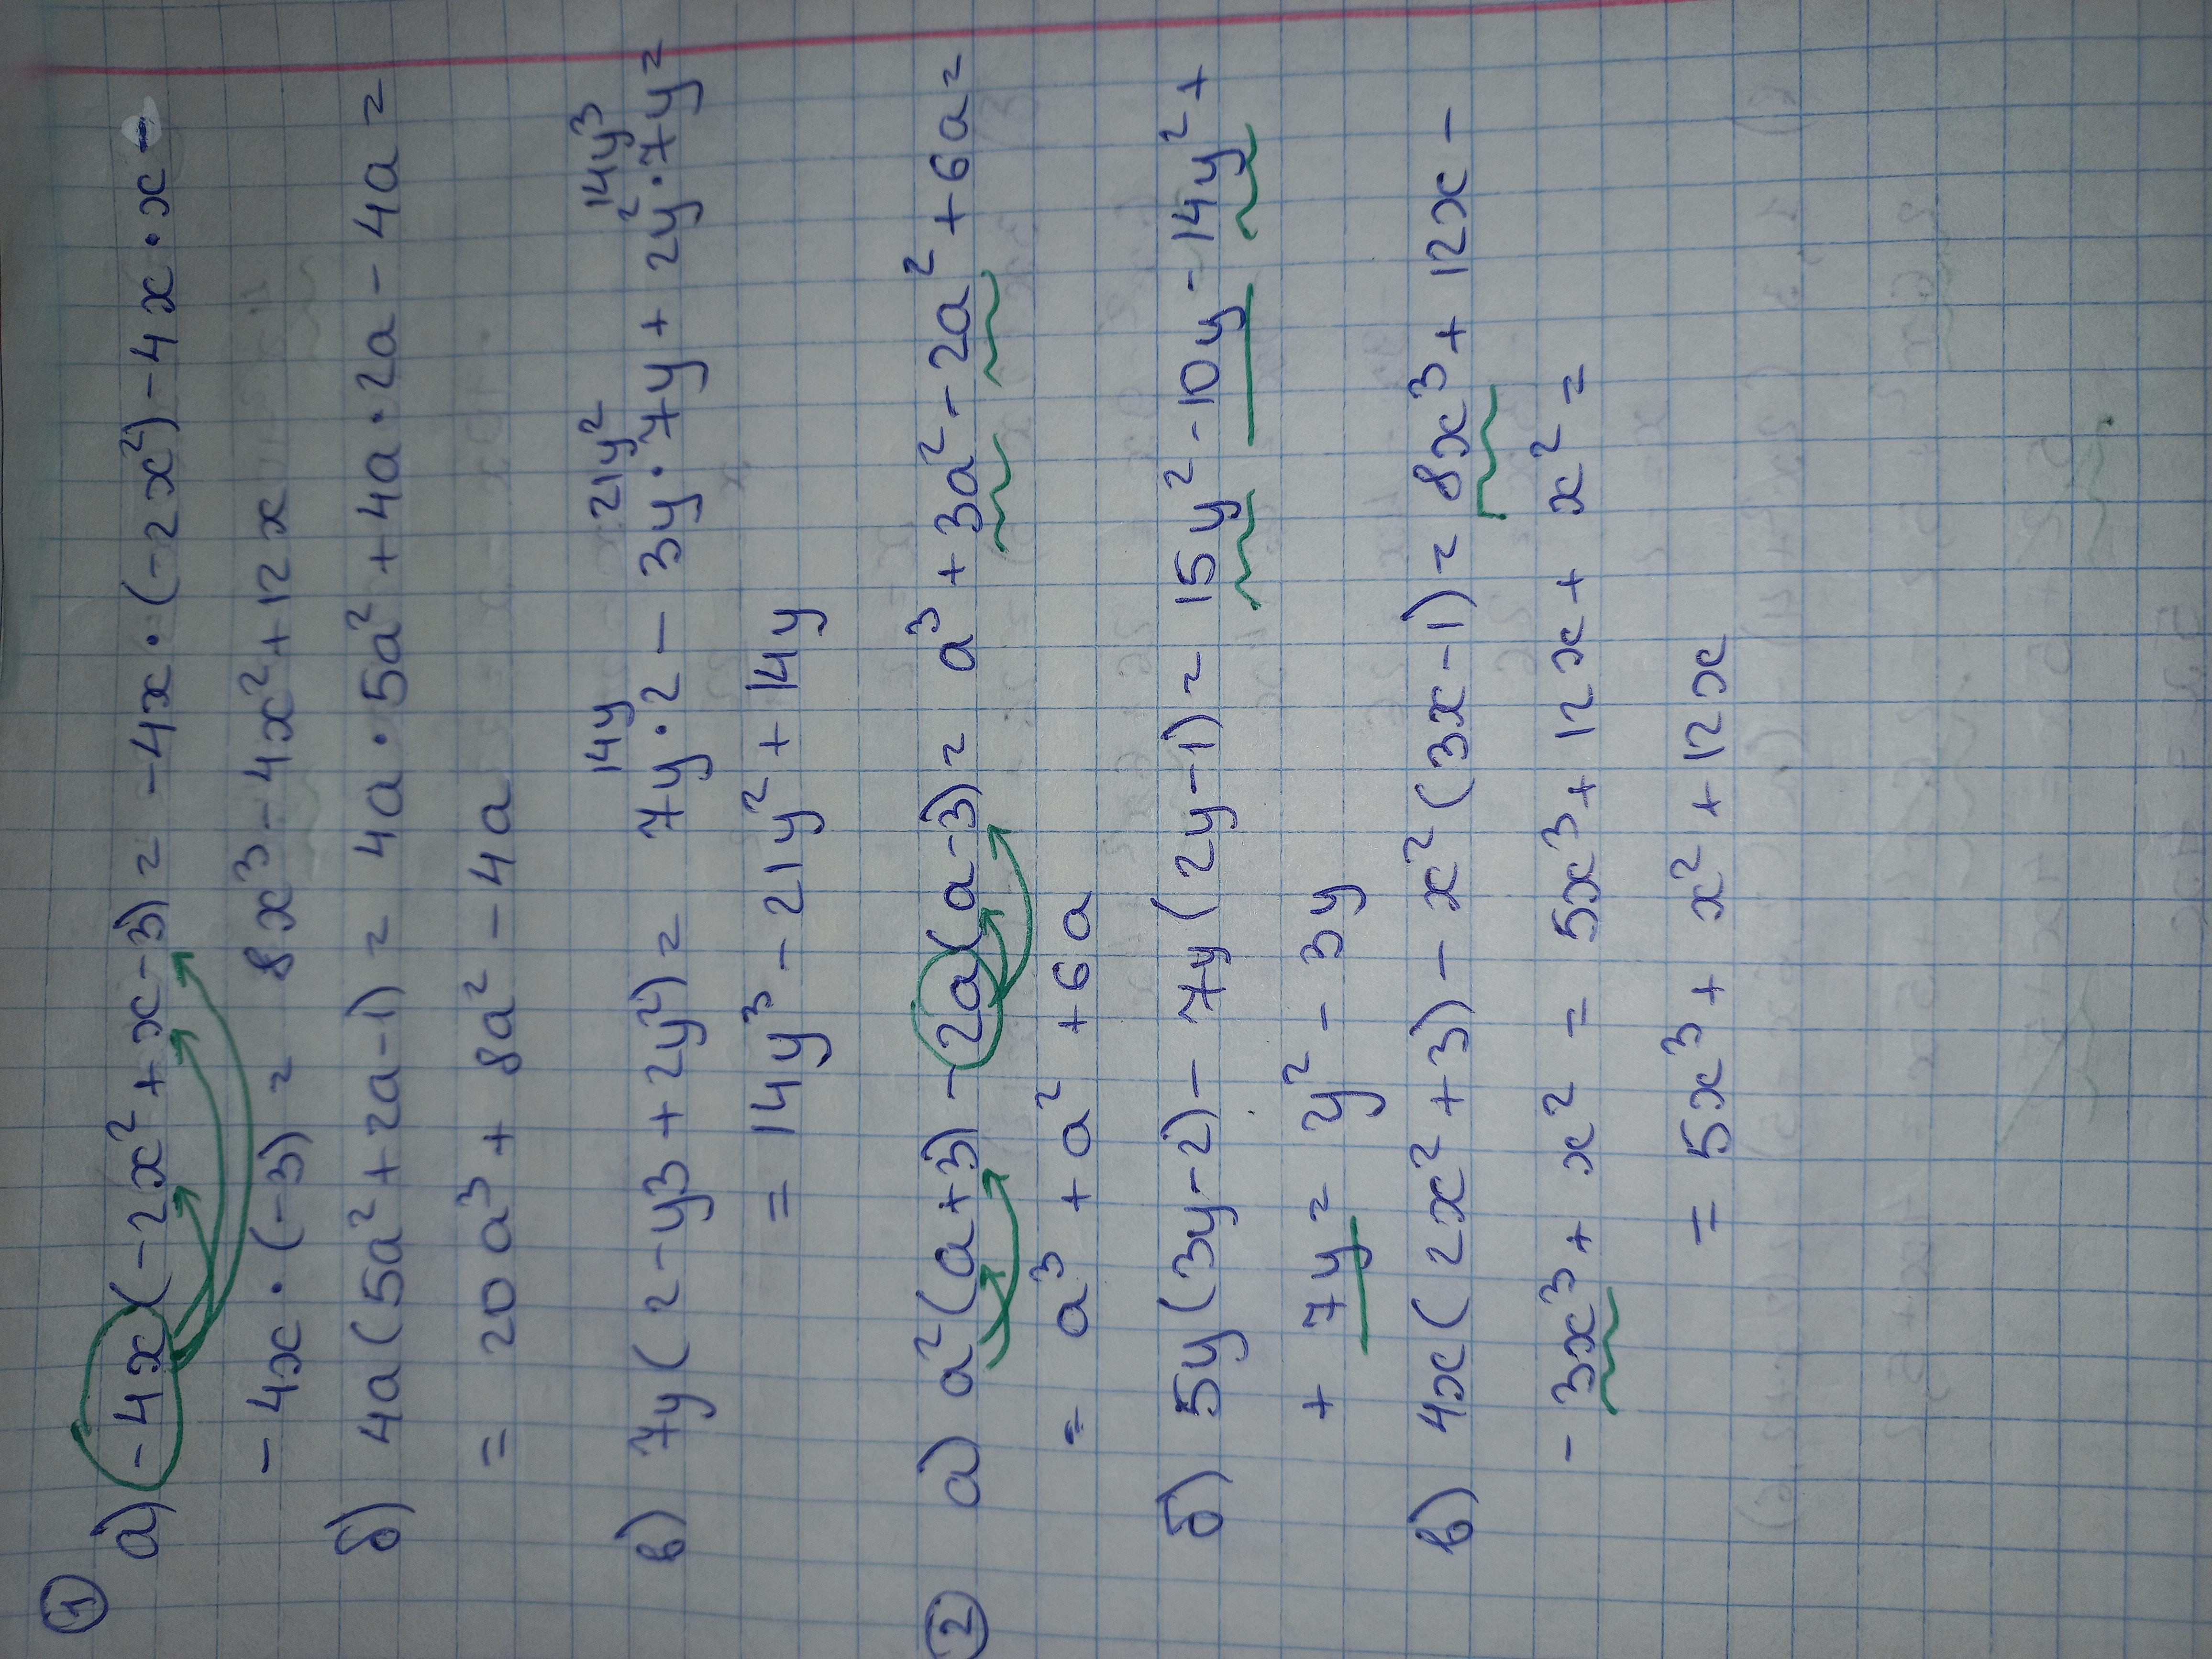 1
а) -4x(-2x²+x-3)= -4x·(-2x²)-4x·x-
-4x·(-3)= 8x³-4x²+12x
б) 4a(5a²+2a-1)= 4a·5a²+4a·2a-4a=
= 20a³+8a²-4a
14y 21y² 14y³
в) 7y(2-y3+2y²)= 7y·2-3y·7y+2y²·7y=
= 14y³-21y²+14y
2 а) a²(a+3)-2a(a-3)= a³+3a²-2a²+6a=
= a³+a²+6a
б) 5y(3y-2)-7y(2y-1)= 15y²-10y-14y²+
+7y= y²-3y
в) 4x(2x²+3)-x²(3x-1)= 8x³+12x-
-3x³+x²=5x³+12x+x²=
=5x³+x²+12x